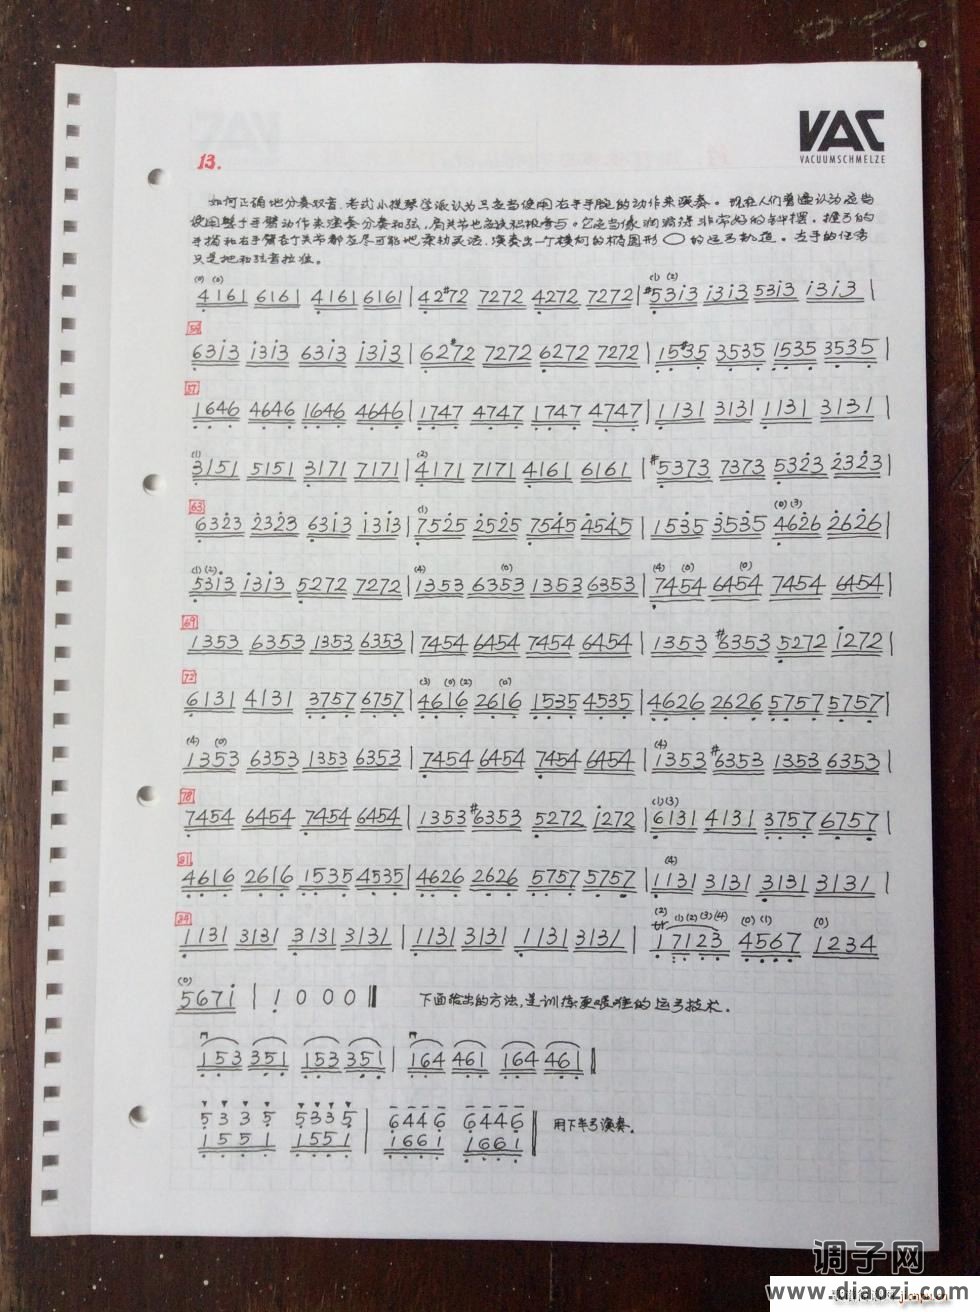 VAC
VACUUMSCHMELZE
13.
如何正确地分奏双音,老式小提琴学派认为只应当使用右手手腕的动作来演奏。现在人们普遍认为应当
使用整个手臂动作来演奏分奏和弦,肩关节也应该积极参与。它应当像润滑得非常好的钟摆,握弓的
手指和右手臂各个关节都应尽可能地柔韧灵活,演奏出一个横向的椭圆形 ○ 的运弓轨道。左手的任务
只是把和弦音拉准。
(0) (0) (1) (2)
4161 6161 4161 6161 | 42#72 7272 4272 7272 | #53i3 i3i3 53i3 i3i3 |
54
63i3 i3i3 63i3 i3i3 | 62#72 7272 6272 7272 | 15#35 3535 1535 3535 |
57
1646 4646 1646 4646 | 1747 4747 1747 4747 | 1131 3131 1131 3131 |
(1) (2)
3151 5151 3171 7171 | 4171 7171 4161 6161 | #5373 7373 5323 2323 |
63
(1) (0) (3)
6323 2323 63i3 i3i3 | 7525 2525 7545 4545 | 1535 3535 4626 2626 |
(1) (2) (4) (0) (4) (0) (0)
53i3 i3i3 5272 7272 | 1353 6353 1353 6353 | 7454 6454 7454 6454 |
69
1353 6353 1353 6353 | 7454 6454 7454 6454 | 1353 #6353 5272 i272 |
72
(3) (0) (2) (0)
6131 4131 3757 6757 | 4616 2616 1535 4535 | 4626 2626 5757 5757 |
(4) (0) (4)
1353 6353 1353 6353 | 7454 6454 7454 6454 | 1353 #6353 1353 6353 |
78
(1) (3)
7454 6454 7454 6454 | 1353 #6353 5272 i272 | 6131 4131 3757 6757 |
81
(4)
4616 2616 1535 4535 | 4626 2626 5757 5757 | 1131 3131 3131 3131 |
84
(2) (1) (2) (3) (4) (0) (1) (0)
tr
1131 3131 3131 3131 | 1131 3131 1131 3131 | 17123 4567 1234
(0)
567i | 1 0 0 0 ‖ 下面给出的方法,是训练更艰难的运弓技术。
153 351 153 351 | 164 461 164 461 ‖
5 3 3 5 5 3 3 5 | 6 4 4 6 6 4 4 6 ‖ 用下半弓演奏。
1 5 5 1 1 5 5 1 | 1 6 6 1 1 6 6 1
调子网
www.diaozi.com